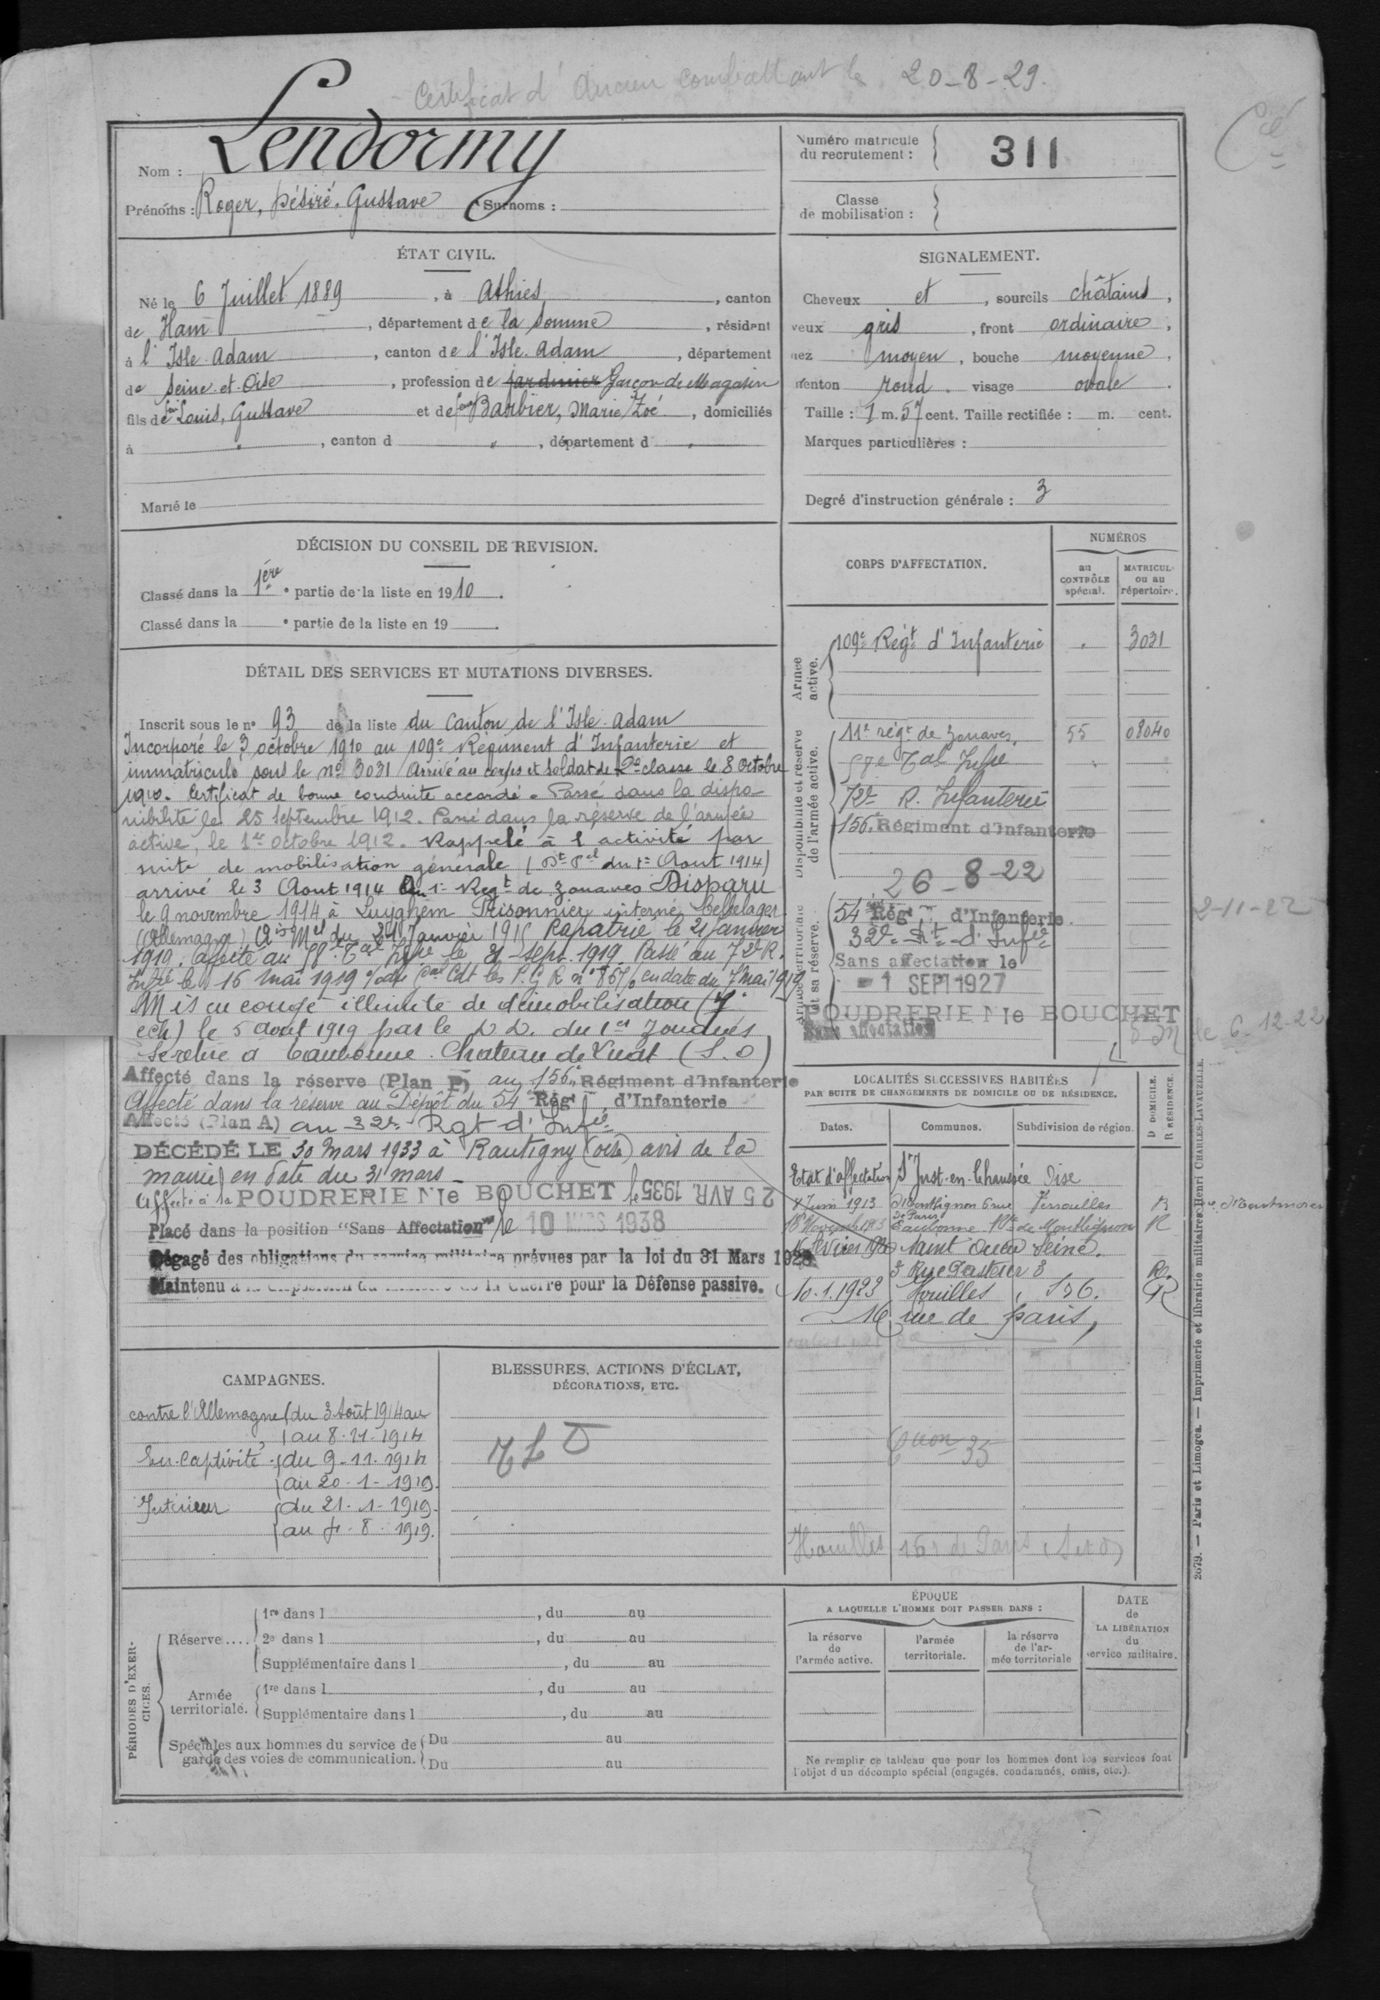 Certificat d'Ancien Combattant le 20-8-29.
Cé
Nom : Lendormy
Prénoms : Roger, Désiré, Gustave Surnoms :
Numéro matricule
du recrutement : 311
Classe
de mobilisation :
ÉTAT CIVIL.
Né le 6 Juillet 1889, à Athies, canton
de Ham, département de la Somme, résident
à l'Isle-Adam, canton de l'Isle-Adam, département
de Seine-et-Oise, profession de jardinier Garçon de Magasin
fils de feu Louis, Gustave et de feue Barbier, Marie Zoé, domiciliés
à " , canton d " , département d "
Marié le
SIGNALEMENT.
Cheveux et , sourcils châtains,
yeux gris , front ordinaire,
nez moyen , bouche moyenne,
menton rond . visage ovale .
Taille : 1 m. 57 cent. Taille rectifiée : m. cent.
Marques particulières :
Degré d'instruction générale : 3
DÉCISION DU CONSEIL DE REVISION.
Classé dans la 1ère partie de la liste en 1910.
Classé dans la e partie de la liste en 19 .
DÉTAIL DES SERVICES ET MUTATIONS DIVERSES.
Inscrit sous le n° 93 de la liste du Canton de l'Isle-Adam
Incorporé le 3 octobre 1910 au 109e Régiment d'Infanterie et
immatriculé sous le n° 3031 Arrivé au corps et Soldat de 2e classe le 8 octobre
1910. Certificat de bonne conduite accordé. Passé dans la dispo-
nibilité le 25 Septembre 1912. Passé dans la réserve de l'armée
active, le 1er octobre 1912. Rappelé à l'activité par
suite de mobilisation générale (Dt Pel du 1er Aout 1914)
arrivé le 3 Aout 1914 Au 1er Régt de zouaves Disparu
le 9 novembre 1914 à Luyghem Prisonnier interné
(Allemagne) du Janvier 1915 Rapatrié le 21 Janvier
1919. affecté au le Sept. 1919. Passé au 72e R.
Infie le 16 mai 1919 en date du 7 Mai 1919
Mis en congé illimité de démobilisation (
ech) le 5 août 1919 par le D. D. du 1er Zouaves
Se retire à Eaubonne. Château de (S. O)
Affecté dans la réserve (Plan P) au 156e Régiment d'Infanterie
Affecté dans la réserve au Dépôt du 54e Régt d'Infanterie
Affecté (Plan A) au 32e Rgt d'Infie
DÉCÉDÉ LE 30 mars 1933 à Rantigny (oise) avis de la
mairie en date du 31 mars
Affecté à la POUDRERIE Nle BOUCHET le 25 AVR 1935
Placé dans la position "Sans Affectation" le 10 MARS 1938
Dégagé des obligations du service militaire prévues par la loi du 31 Mars 1928
Maintenu à la disposition du Ministre de la Guerre pour la Défense passive.
CORPS D'AFFECTATION.
NUMÉROS
au
CONTRÔLE
spécial.
MATRICUL.
ou au
répertoire.
Armée
active.
109e Régt d'Infanterie . 3031
Disponibilité et réserve
de l'armée active.
11e régt de zouaves, 55 08040
58e Tal Infie
72e R. Infanterie
156e Régiment d'Infanterie
26-8-22
Armée territoriale
et sa réserve.
54e Régt d'Infanterie. 2-11-22
32e Rt d'Infie
Sans affectation le
1 SEPT 1927
POUDRERIE Nle BOUCHET
Sans affectation
le 6-12-22
LOCALITÉS SUCCESSIVES HABITÉES
PAR SUITE DE CHANGEMENTS DE DOMICILE OU DE RÉSIDENCE.
D DOMICILE.
R RÉSIDENCE.
Dates. Communes. Subdivision de région.
Etat d'affectation St Just-en-Chaussée Oise
8 Juin 1913 Montlignon 6 rue Versailles R
de Paris
18 Novemb 1913 Eaubonne Rte de Montlignon R
16 Février 1920 Saint Ouen Seine.
3 Rue Pasteur 3 R.
10.1.1923 Houilles, S&O. R
16, rue de Paris,
35
Houilles 16 r de Paris (S et O)
CAMPAGNES.
contre l'Allemagne (du 3 Août 1914 au
au 8-11-1914
En Captivité (du 9-11-1914
au 20-1-1919.
Intérieur (du 21-1-1919.
au 4-8-1919.
BLESSURES, ACTIONS D'ÉCLAT,
DÉCORATIONS, ETC.
PÉRIODES D'EXER-
CICES.
Réserve....
1re dans l , du au
2e dans l , du au
Supplémentaire dans l , du au
Armée
territoriale.
1re dans l , du au
Supplémentaire dans l , du au
Spéciales aux hommes du service de
garde des voies de communication.
Du au
Du au
ÉPOQUE
A LAQUELLE L'HOMME DOIT PASSER DANS :
la réserve
de
l'armée active.
l'armée
territoriale.
la réserve
de l'ar-
mée territoriale
DATE
de
LA LIBÉRATION
du
service militaire.
Ne remplir ce tableau que pour les hommes dont les services font
l'objet d'un décompte spécial (engagés, condamnés, omis, etc.).
2679. — Paris et Limoges. — Imprimerie et librairie militaires Henri CHARLES-LAVAUZELLE.